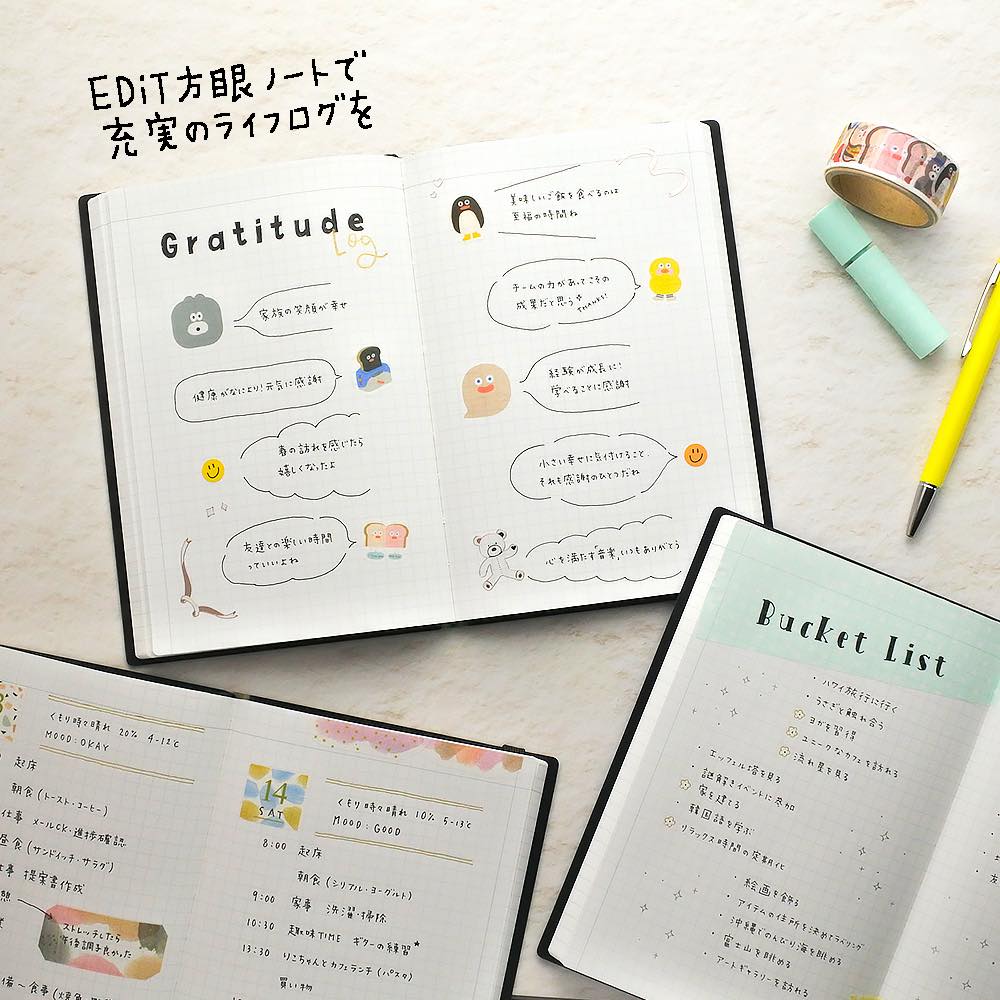 EDiT方眼ノートで
充実のライフログを
Gratitude
Log
家族の笑顔が幸せ
健康がなにより!元気に感謝
春の訪れを感じたら
嬉しくなったよ
友達との楽しい時間
っていいよね
美味しいご飯を食べるのは
至福の時間ね
チームの力があってこその
成果だと思う
THANKS!
経験が成長に!
学べることに感謝
小さい幸せに気付けること、
それも感謝のひとつだね
心を満たす「音楽」いつもありがとう
くもり時々晴れ 20% 4-12℃
MOOD:OKAY
起床
朝食(トースト・コーヒー)
仕事 メールCK・進捗確認
昼食(サンドイッチ・サラダ)
仕事 提案書作成
ストレッチしたら
午後調子良かった
14
SAT
くもり時々晴れ 10% 5-13℃
MOOD:GOOD
8:00 起床
朝食(シリアル・ヨーグルト)
9:00 家事 洗濯・掃除
10:30 趣味TIME ギターの練習★
13:30 りこちゃんとカフェランチ(パスタ)
買い物
Bucket List
・ハワイ旅行に行く
・うさぎと触れ合う
ヨガを習得
ユニークなカフェを訪れる
流れ星を見る
・エッフェル塔を見る
・謎解きイベントに参加
家を建てる
・韓国語を学ぶ
リラックス時間の定期化
・絵画を飾る
・アイテムの住所を決めてラベリング
・沖縄でのんびり海を眺める
・富士山を眺める
・アートギャラリーを訪れる